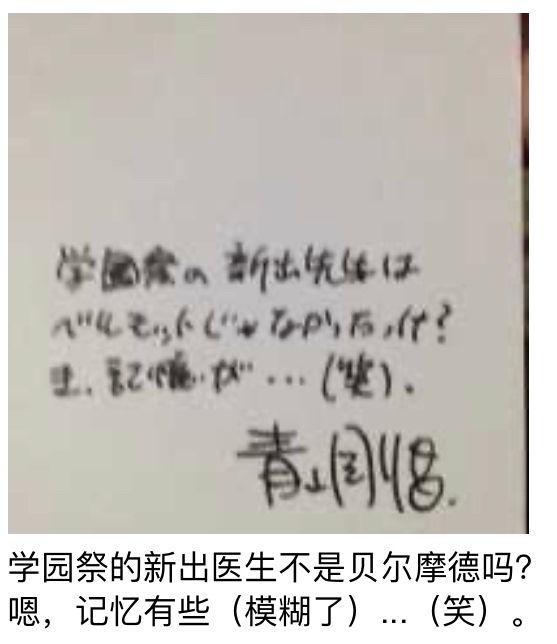 学園祭の新出先生は
ベルモットじゃなかったっけ?
ま、記憶が…(笑).
青山剛昌.
学园祭的新出医生不是贝尔摩德吗?
嗯，记忆有些（模糊了）...（笑）。